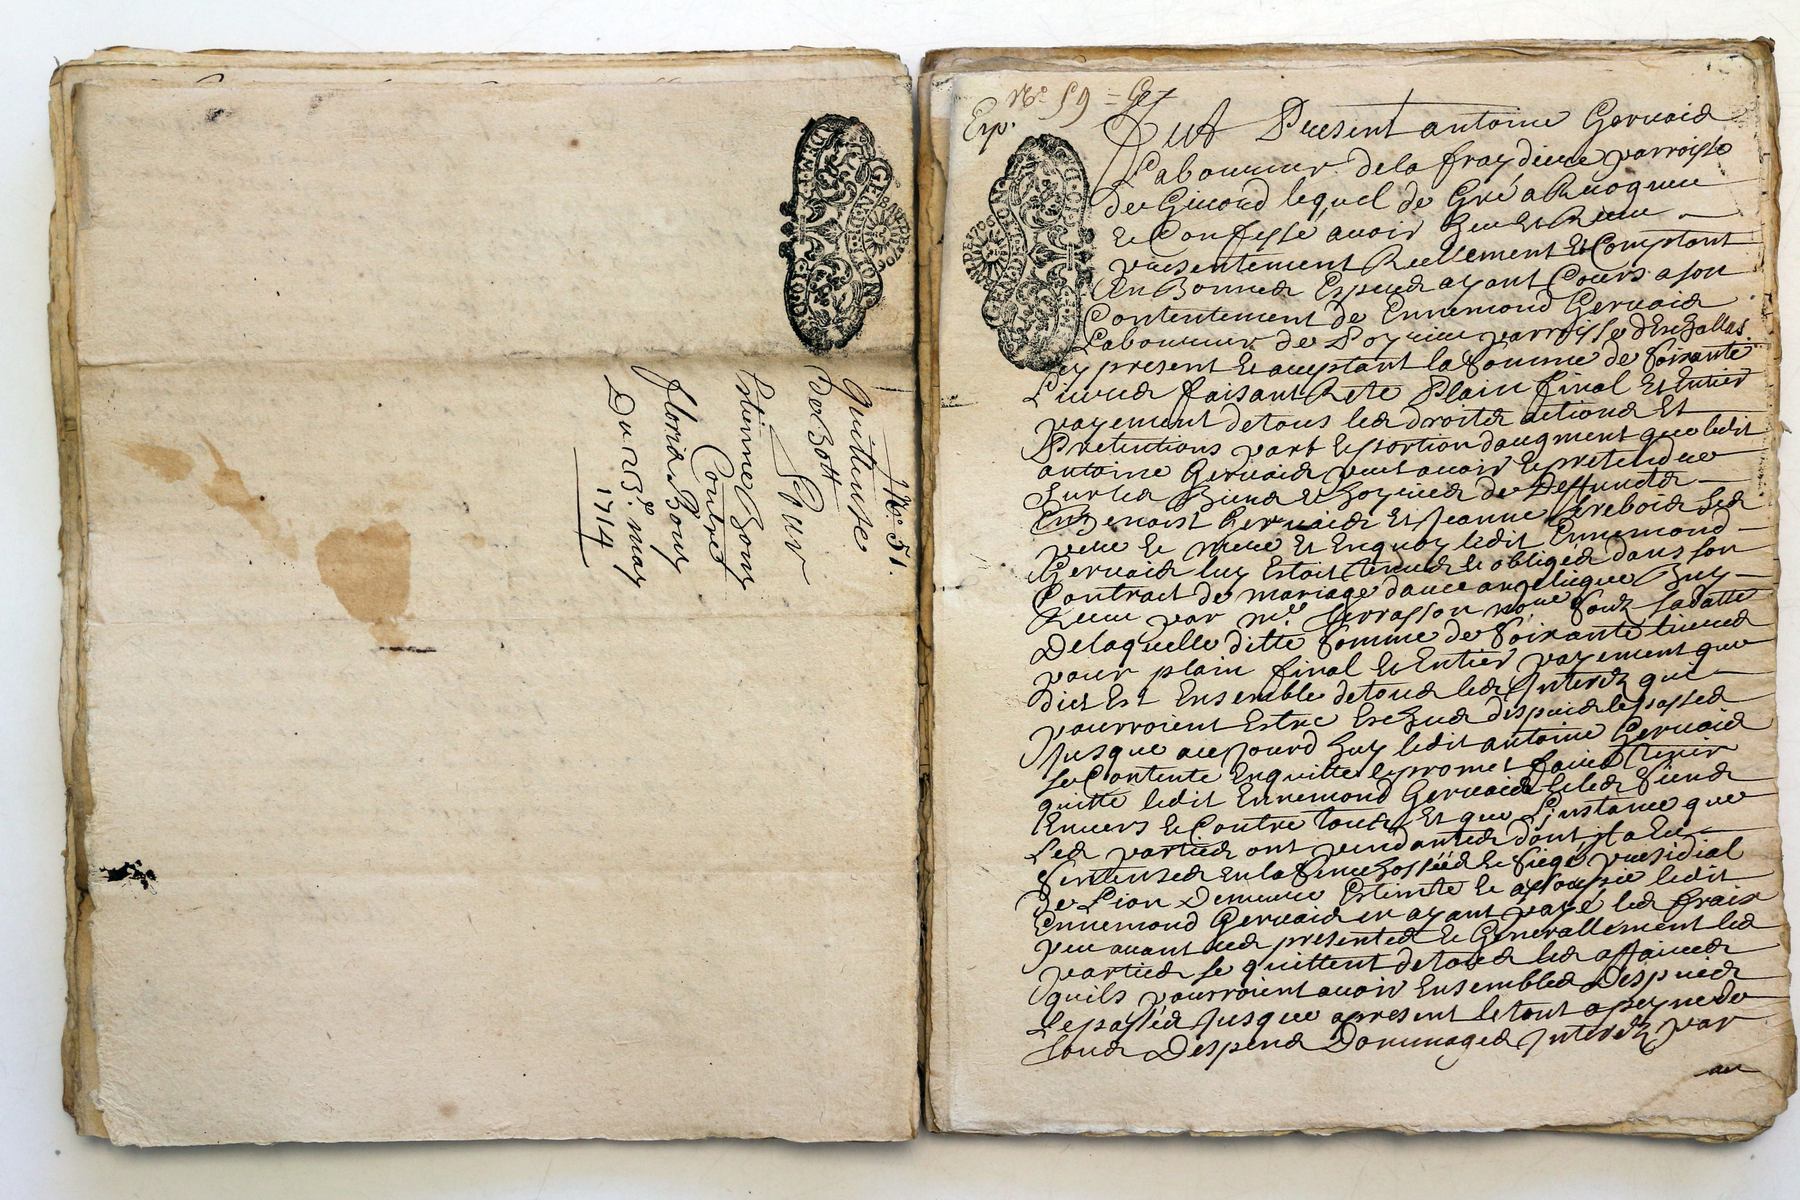 No. 51.
Quittense
De Bott
Pour
Estienne Bony
Contre
Floris Bony
Du 23e. may
1714
GENER LION
No. 59
Exp.
Fut Present antoine Gervais
Laboureur de la fraydiere parroisse
de Givord lequel de Gré a Recogneu
et Confessé avoir heu et Receu
presentement Reellement et Comptant
En Bonnes Especes ayant Cours a son
Contentement de Ennemond Gervais
Laboureur de parroisse d'Eschallas
icy present et aceptant la somme de soixante
Livres faisant Reste Plain final et Entier
payement de tous les droits actions et
Pretentions part et portion daugment que ledit
antoine Gervais peut avoir et pretendre
sur les Biens et hoyries de Deffuncts
Benoist Gervais et Jeanne ses
pere et mere et Enquoy ledit Ennemond
Gervais luy Estoit tenu et obligé dans son
Contract de mariage avec angelique
Receu par me. Terrasson nore soubs sa datte
De laquelle ditte somme de soixante livres
pour plain final et Entier payement que
dict Est Ensemble de tous les Interetz qui
pourroient Estre Escheus despuis le passé
Jusque aujourd huy ledit antoine Gervais
se Contente Enquitte et promet faire tenir
quitte ledit Ennemond Gervais et les siens
Envers et Contre tous Et que L'instance que
les parties ont pendante dont il a eu
sentense En la senechossée et siege presidial
de Lion Demeure Estinte et assoupie ledit
Ennemond Gervais en ayant payé les frais
peu avant ces presentes et Generallement les
parties se quittent de tous les affaires
qu'ils pourroient avoir Ensembles Despuis
le passé Jusque apresent le tout a peyne de
tous Despens Dommages Interetz par
au